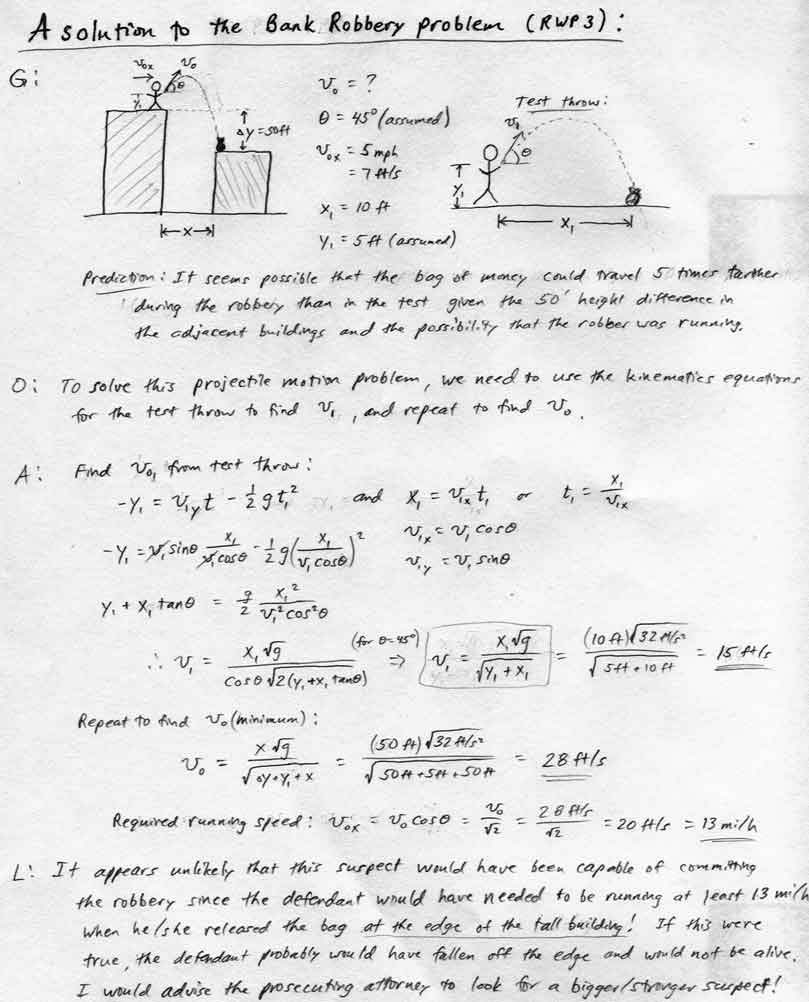 A solution to the Bank Robbery problem (RWP3):
G:
v₀ₓ v₀ θ
y₁
Δy = 50ft
x
v₀ = ?
θ = 45° (assumed)
v₀ₓ = 5 mph
= 7 ft/s
x₁ = 10 ft
y₁ = 5 ft (assumed)
Test throw:
v₁ θ
y₁
x₁
Prediction: It seems possible that the bag of money could travel 5 times farther
during the robbery than in the test given the 50' height difference in
the adjacent buildings and the possibility that the robber was running.
O: To solve this projectile motion problem, we need to use the kinematics equations
for the test throw to find v₁, and repeat to find v₀.
A: Find v₀₁ from test throw:
-y₁ = v₁y t - ½ g t₁² and x₁ = v₁ₓ t₁ or t₁ = x₁/v₁ₓ
-y₁ = v₁ sinθ x₁/(v₁ cosθ) - ½ g (x₁/(v₁ cosθ))² v₁ₓ = v₁ cosθ
v₁y = v₁ sinθ
y₁ + x₁ tanθ = g/2 x₁²/(v₁² cos²θ)
∴ v₁ = x₁√g/(cosθ √2(y₁+x₁ tanθ)) (for θ=45°) ⇒ v₁ = x₁√g/√(y₁+x₁) = (10 ft)√(32 ft/s²)/√(5ft + 10 ft) = 15 ft/s
Repeat to find v₀ (minimum):
v₀ = x√g/√(Δy+y₁+x) = (50 ft)√(32 ft/s²)/√(50ft + 5ft + 50ft) = 28 ft/s
Required running speed: v₀ₓ = v₀ cosθ = v₀/√2 = 28 ft/s/√2 = 20 ft/s = 13 mi/h
L: It appears unlikely that this suspect would have been capable of committing
the robbery since the defendant would have needed to be running at least 13 mi/h
when he/she released the bag at the edge of the tall building! If this were
true, the defendant probably would have fallen off the edge and would not be alive.
I would advise the prosecuting attorney to look for a bigger/stronger suspect!